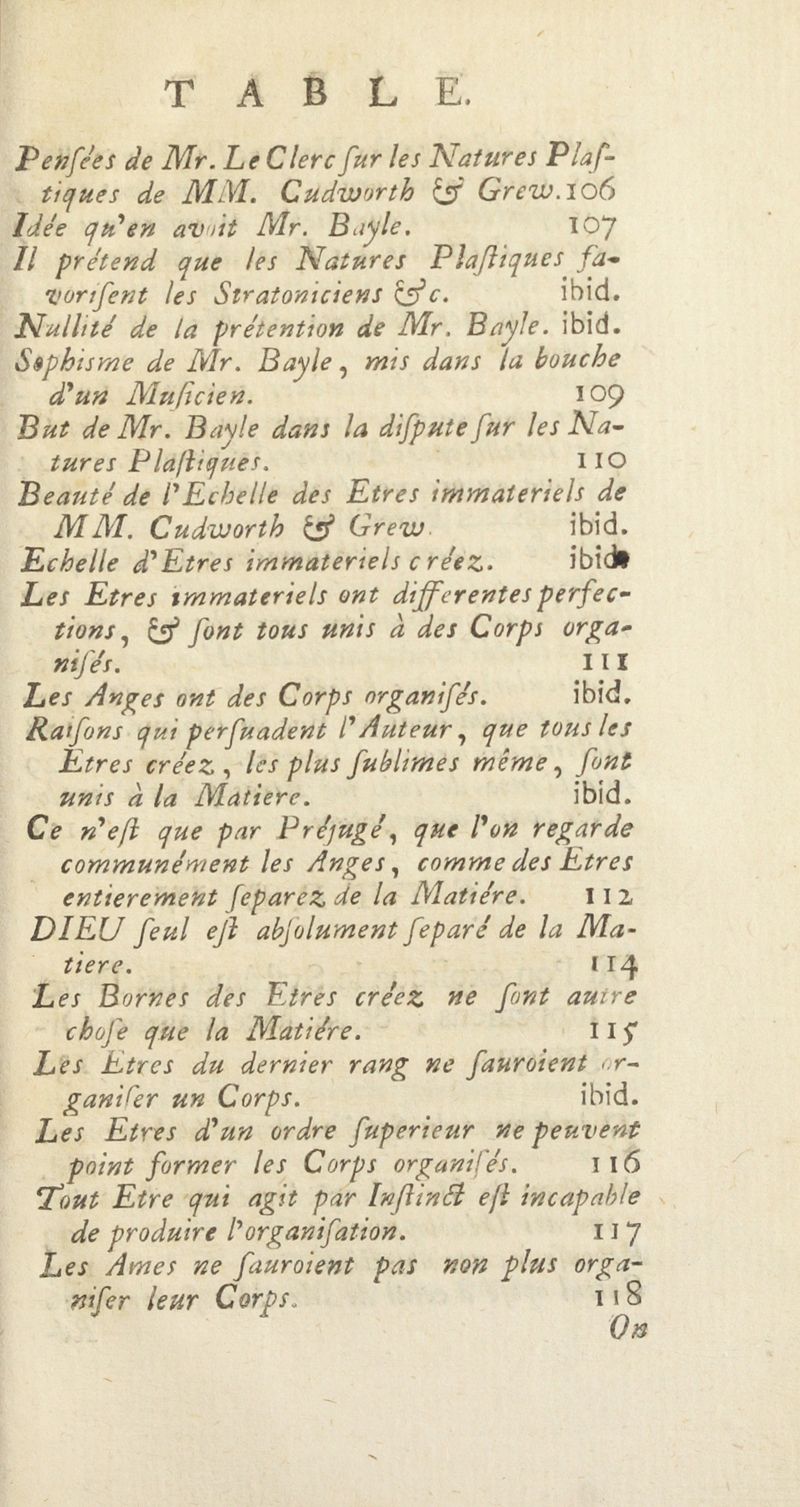 TABLE.
Penſées de Mr. Le Clerc ſur les Natures Plaſ-
tiques de MM. Cudworth & Grew. 106
Idée qu'en avoit Mr. Bayle. 107
Il prétend que les Natures Plaſtiques fa-
voriſent les Stratoniciens &c. ibid.
Nullité de la prétention de Mr. Bayle. ibid.
Sophisme de Mr. Bayle, mis dans la bouche
d'un Muſicien. 109
But de Mr. Bayle dans la diſpute ſur les Na-
tures Plaſtiques. 110
Beauté de l'Echelle des Etres immateriels de
MM. Cudworth & Grew. ibid.
Echelle d'Etres immateriels créez. ibid.
Les Etres immateriels ont differentes perfec-
tions, & ſont tous unis à des Corps orga-
niſés. 111
Les Anges ont des Corps organiſés. ibid.
Raiſons qui perſuadent l'Auteur, que tous les
Etres créez, les plus ſublimes même, ſont
unis à la Matiere. ibid.
Ce n'eſt que par Préjugé, que l'on regarde
communément les Anges, comme des Etres
entierement ſeparez de la Matiére. 112
DIEU ſeul eſt abſolument ſeparé de la Ma-
tiere. 114
Les Bornes des Etres créez ne ſont autre
choſe que la Matiére. 115
Les Etres du dernier rang ne ſauroient or-
ganiſer un Corps. ibid.
Les Etres d'un ordre ſuperieur ne peuvent
point former les Corps organiſés. 116
Tout Etre qui agit par Inſtinct eſt incapable
de produire l'organiſation. 117
Les Ames ne ſauroient pas non plus orga-
niſer leur Corps. 118
On